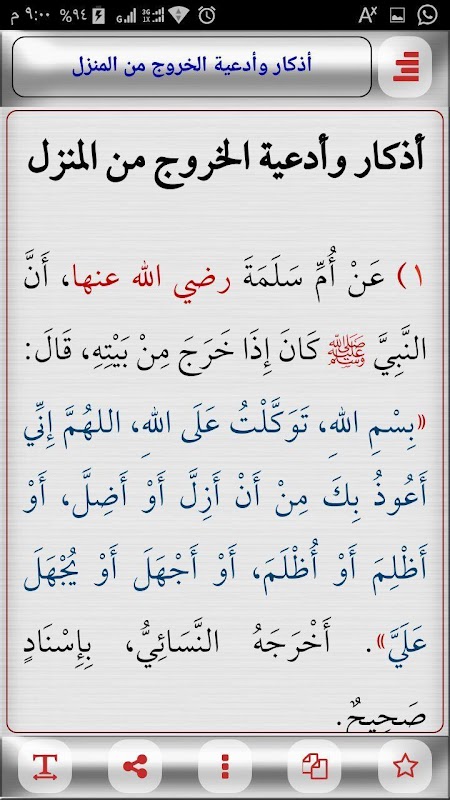 ٩:٠٠ م ٩٤%
أذكار وأدعية الخروج من المنزل
أذكار وأدعية الخروج من المنزل
١) عَنْ أُمِّ سَلَمَةَ رضي الله عنها، أَنَّ
النَّبِيَّ ﷺ كَانَ إِذَا خَرَجَ مِنْ بَيْتِهِ، قَالَ:
«بِسْمِ اللهِ، تَوَكَّلْتُ عَلَى اللهِ، اللهُمَّ إِنِّي
أَعُوذُ بِكَ مِنْ أَنْ أَزِلَّ أَوْ أَضِلَّ، أَوْ
أَظْلِمَ أَوْ أُظْلَمَ، أَوْ أَجْهَلَ أَوْ يُجْهَلَ
عَلَيَّ». أَخْرَجَهُ النَّسَائِيُّ، بِإِسْنَادٍ
صَحِيحٌ.